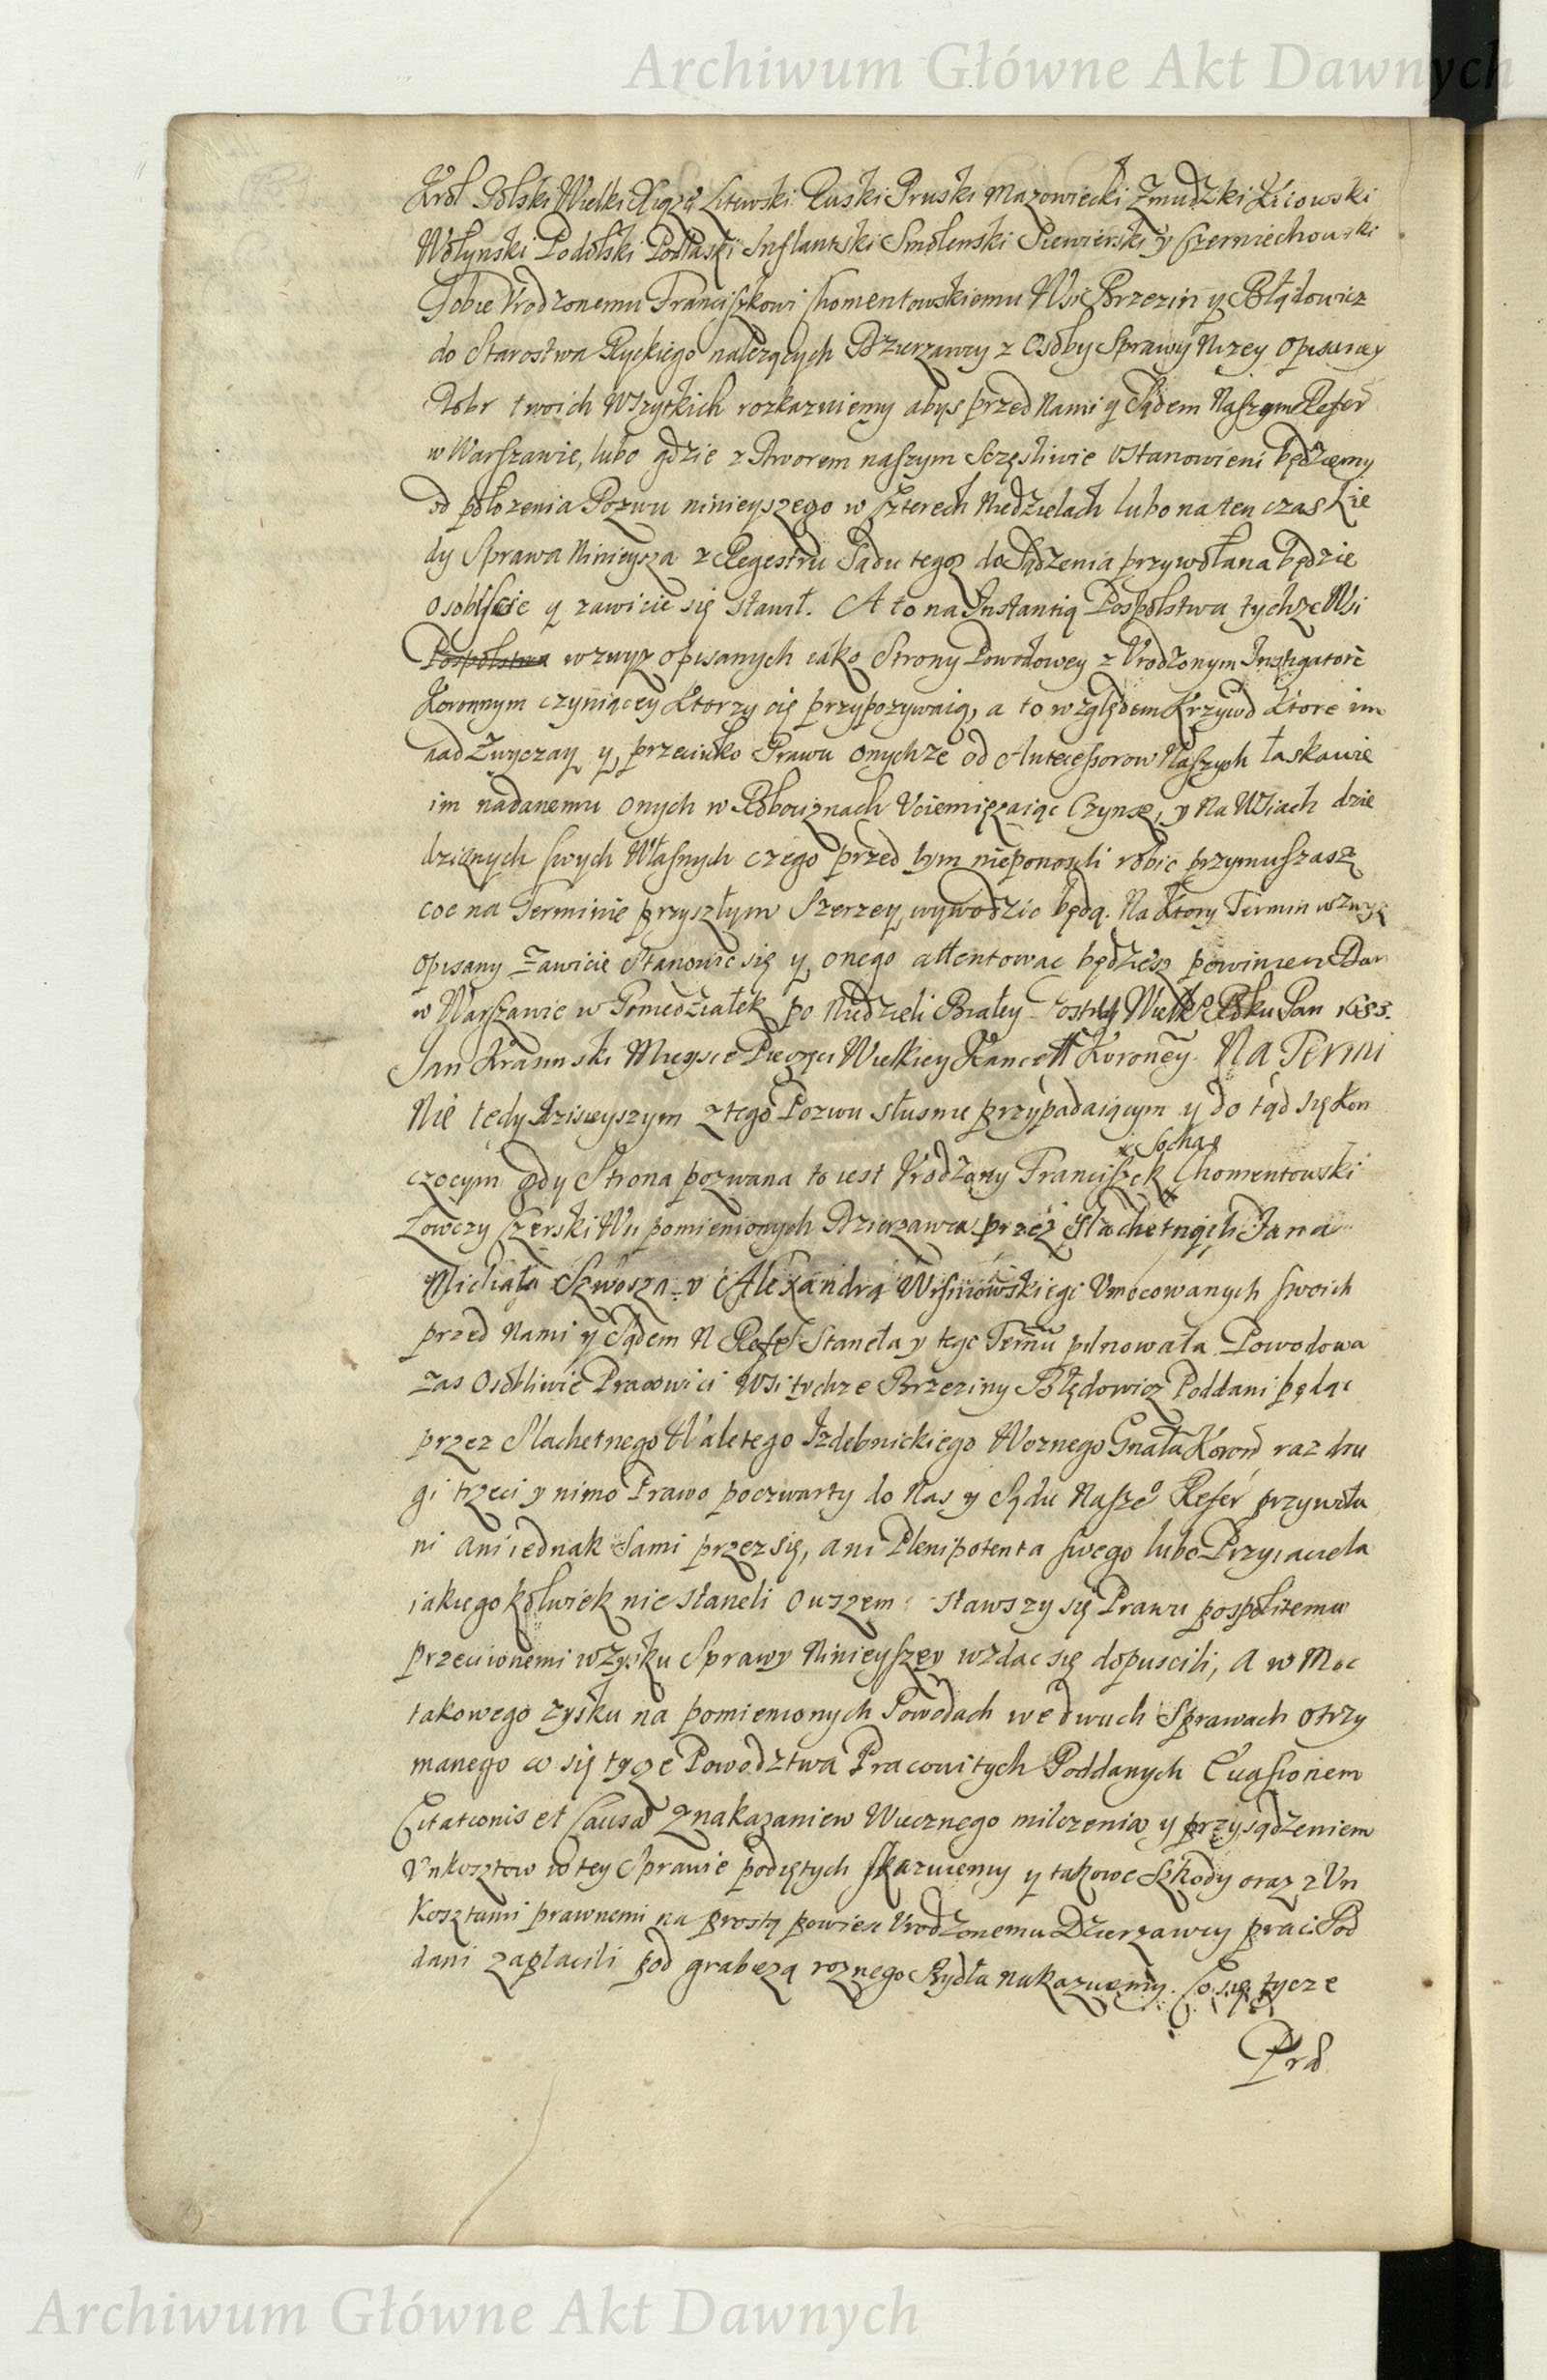 Archiwum Główne Akt Dawnych
Krol Polski Wielki Xiąze Litewski Ruski Pruski Mazowiecki Zmudzki Kiiowski
Wołynski Podolski Podlaski Inflantski Smolenski Siewierski y Czerniechowski
Tobie Vrodzonemu Franciszkowi Chomentowskiemu Wsi Brzezin y Błędowicz
do Starostwa Ryckiego nalezących Dzierzawcy z Osoby Sprawy Nizey opisaney
Dobr twoich Wszytkich rozkazuiemy abys przed Nami y Sądem Naszym Refer
w Warszawie, lubo gdzie z Dworem naszym Sczęsliwie Vstanowieni będziemy
od połozenia Pozwu ninieyszego w Czterech Niedzielach lubo na ten czas Kie
dy Sprawa Ninieysza z Regestru Sądu tegoz do Sądzenia przywołana będzie
osobiscie y zawicie się stawił. A to na Instantią Pospolstwa tychze Wsi
Pospolstwa wzwyz opisanych iako Strony Powodowey z Vrodzonym Instigatore
Koronnym czyniącey Ktorzy cię przypozywaią, a to względem Krzywd Ktore im
nad Zwyczay y przeciwko Prawu onychze od Antecessorow Naszych łaskawie
im nadanemu onych w Robociznach Vciemięzaiąc Czynsz, y Na Wsiach dzie
dzicznych swych Własnych czego przed tym nieponosili robic przymuszasz
coc na Terminie przyszłym Szerzey wywodzic będą. Na Ktory Termin wzwyz
opisany Zawicie Stanowic się y onego attentowac będziesz powinien Dan
w Warszawie w Poniedziałek po Niedzieli Białey Postu Wielkiego Roku Pan 1683.
Jan Krasinski Mieysce Pieczęci Wielkiey Kancell Koroney. Na Termi
Nie tedy dzisieyszym z tego Pozwu słusnie przypadaiącym y do tąd się Kon
czącym gdy Strona pozwana to iest Vrodzony Franciszek Chomentowski
Łowczy Czerski Wsi pomienionych Dzierzawca przez Slachetnych Jana
Michała Szwosza y Alexandra Wisniowskiego Vmocowanych swoich
przed Nami y Sądem N Refer Staneła y tego Terminu pilnowała Powodowa
zas osobliwie Pracowici Wsi tychze Brzeziny Błędowicz Poddani będąc
przez Slachetnego Walentego Izdebnickiego Woznego Gnała Koron raz dru
gi trzeci y nimo Prawo poczwarty do Nas y Sądu Naszeo Refer przywoła
ni ani iednak Sami przez się, ani Plenipotenta swego lubo Przyiaciela
iakiegokolwiek nie staneli owszem stawszy się Prawu pospolitemu
przeciwnemi w Zysku Sprawy Ninieyszey wzdac się dopuscili, A w Moc
takowego zysku na pomienionych Powodach we dwuch Sprawach otrzy
manego co się tycze Powodztwa Pracowitych Poddanych Euasionem
Citationis et Causæ z nakazaniem Wiecznego milczenia y przysądzeniem
Vnkosztow w tey Sprawie podiętych skazuiemy y takowe Szkody oraz z Vn
kosztami prawnemi na prostą powiesc Vrodzonemu Dzierzawcy praci Pod
dani zapłacili pod grabiezą roznego Bydła nakazuiemy. Co się tycze
Pra
Archiwum Główne Akt Dawnych